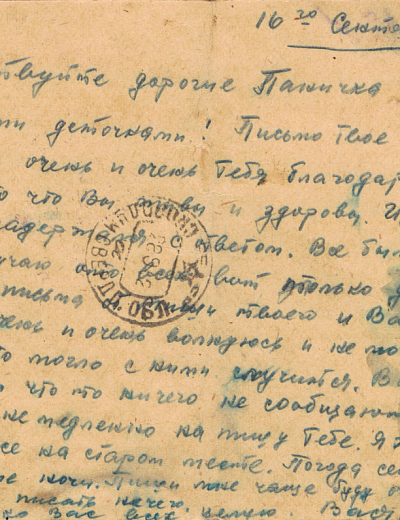 16го Сентя
твуйте дорогие Паничка
ми деточками! Письмо твое
очень и очень Тебя благодар
о что Вы живы и здоровы. И
задерж ответом. Все бы
учаю ото всех вот только
письма от твоего и Ва
чень и очень волнуюсь и не мо
то могло с ними случится. В
что то ничего не сообщают
не медленно напишу Тебе. Я
се на старом месте. Погода се
ые ночи. Пиши мне чаще буду
писать нечего.
ю Вас всех целую. Вася